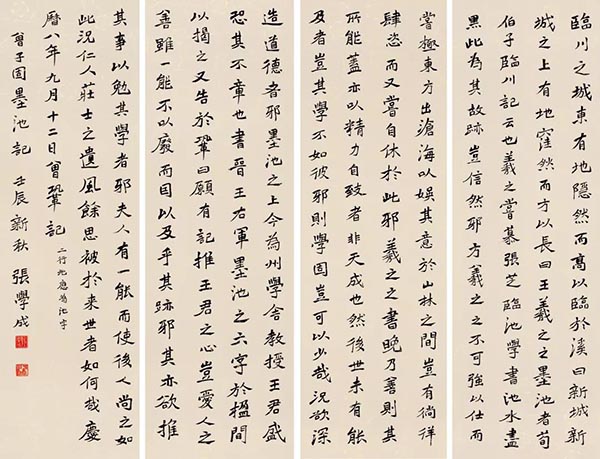 臨川之城東有地隱然而高以臨於溪曰新城新
城之上有地窪然而方以長曰王羲之之墨池者荀
伯子臨川記云也羲之嘗慕張芝臨池學書池水盡
黑此為其故跡豈信然邪方羲之之不可強以仕而
嘗極東方出滄海以娛其意於山林之間豈有徜徉
肆恣而又嘗自休於此邪羲之之書晚乃善則其
所能蓋亦以精力自致者非天成也然後世未有能
及者豈其學不如彼邪則學固豈可以少哉況欲深
造道德者邪墨池之上今為州學舍教授王君盛
恐其不章也書晉王右軍墨池之六字於楹間
以揭之又告於鞏曰願有記推王君之心豈愛人之
善雖一能不以廢而因以及乎其跡邪其亦欲推
其事以勉其學者邪夫人有一能而使後人尚之如
此況仁人莊士之遺風餘思被於来世者如何哉慶
曆八年九月十二日曾鞏記 二行地應為池字
曾子固墨池記 壬辰新秋 張學成